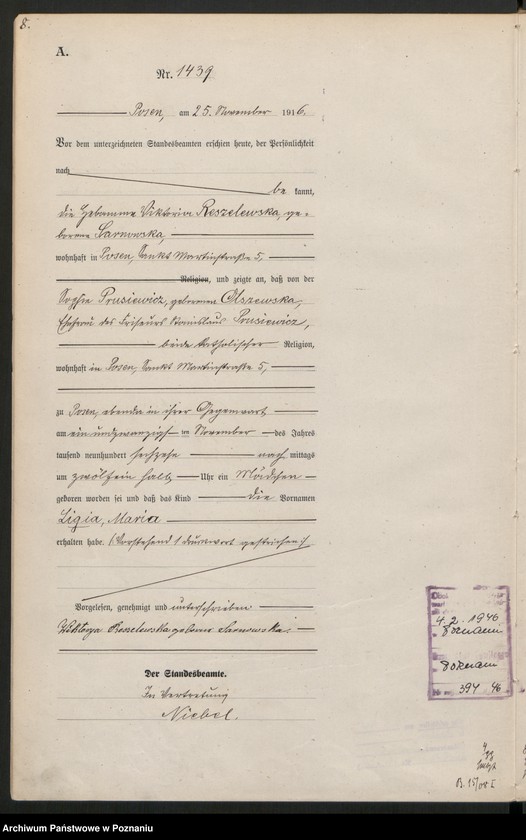 8.
A.
Nr. 1439
Posen, am 25. November 1916.
Vor dem unterzeichneten Standesbeamten erschien heute, der Persönlichkeit
nach
be kannt,
die Hebamme Viktoria Reszelewska, ge-
borene Sarnowska,
wohnhaft in Posen, Sankt Martinstraße 5,
Religion, und zeigte an, daß von der
Sophie Prusiewicz, geborenen Olszewska,
Ehefrau des Friseurs Stanislaus Prusiewicz,
beide katholischer Religion,
wohnhaft in Posen, Sankt Martinstraße 5,
zu Posen, ebenda in ihrer Gegenwart
am ein und zwanzigsten November des Jahres
tausend neunhundert sechzehn nach mittags
um zwölf ein halb Uhr ein Mädchen
geboren worden sei und daß das Kind die Vornamen
Ligia, Maria
erhalten habe. (Vorstehend 1 Druckwort gestrichen.)
Vorgelesen, genehmigt und unterschrieben
Wiktorya Reszelewska geborne Sarnowska.
Der Standesbeamte.
In Vertretung
Niebel.
4. 2. 1946
Poznań
Poznań
394 46
Archiwum Państwowe w Poznaniu